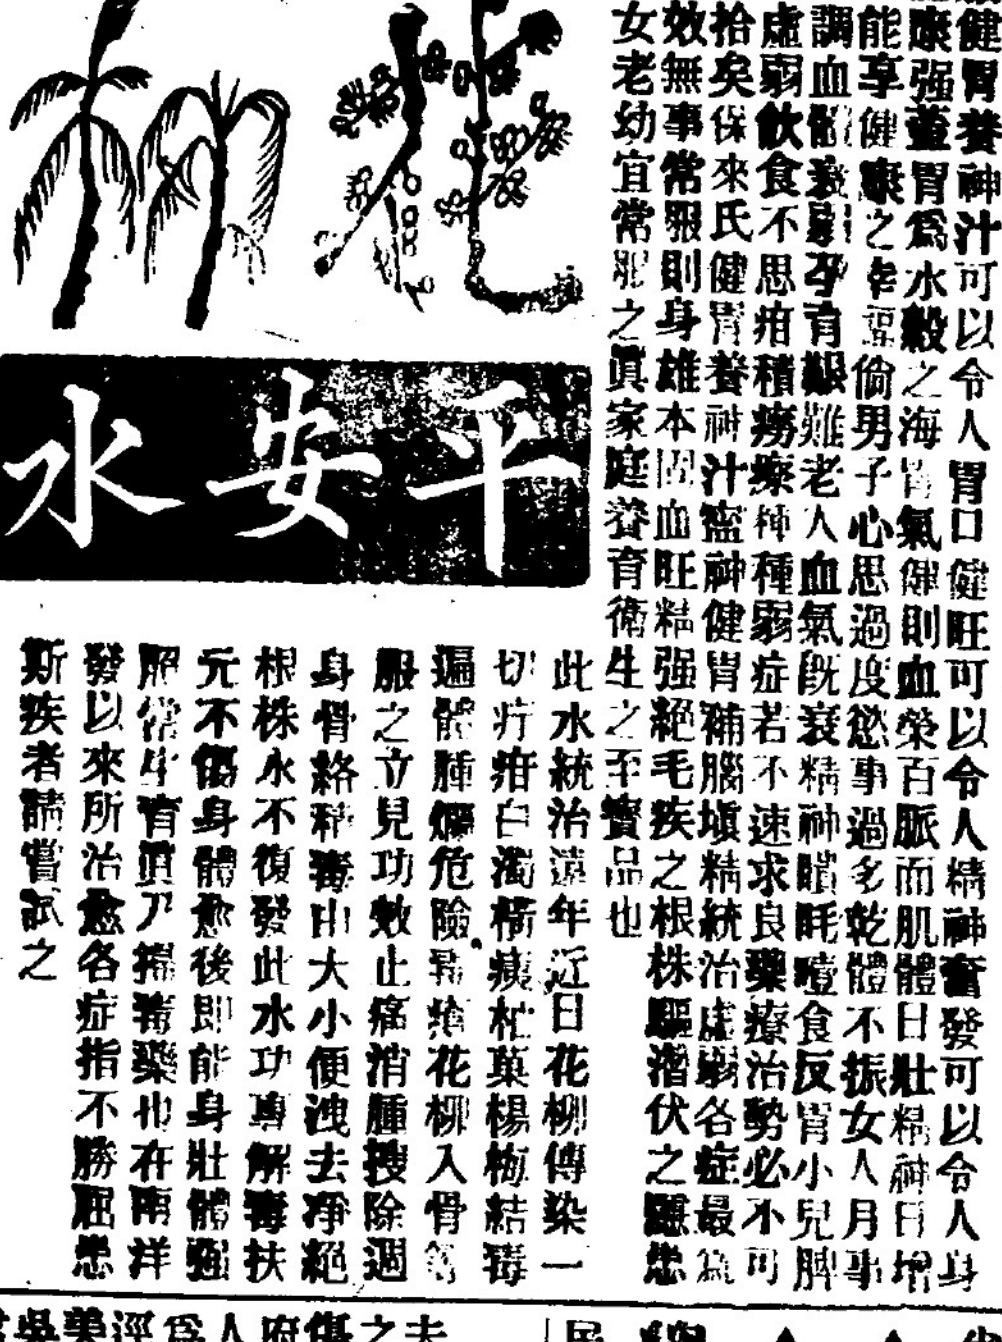 健胃養神汁可以令人胃口健旺可以令人精神奮發可以令人身
康强蓋胃為水穀之海胃氣健則血榮百脈而肌體日壯精神日增
能享健康之幸福倘男子心思過度慾事過多乾體不振女人月事
調血體衰孕育艱難老人血氣既衰精神瞶眊噎食反胃小兒脾
虛弱飲食不思疳積癆瘵種種弱症若不速求良藥療治勢必不可
拾矣保來氏健胃養神汁蜜神健胃補腦塡精統治虛弱各症最為
效無事常服則身雄本固血旺精强絕毛疾之根株驅潛伏之隱患
女老幼宜常服之眞家庭養育衛生之至寶品也
平安水
此水統治遠年近日花柳傳染一
切疔疳白濁橫痃杧菓楊梅結毒
遍體腫爛危險 花柳入骨等
服之立見功效止痛消腫搜除週
身骨絡積毒由大小便洩去凈絕
根株永不復發此水功專解毒扶
元不傷身體愈後即能身壯體强
照常生育眞乃掃毒藥也在南洋
發以來所治愈各症指不勝屈患
斯疾者請嘗試之